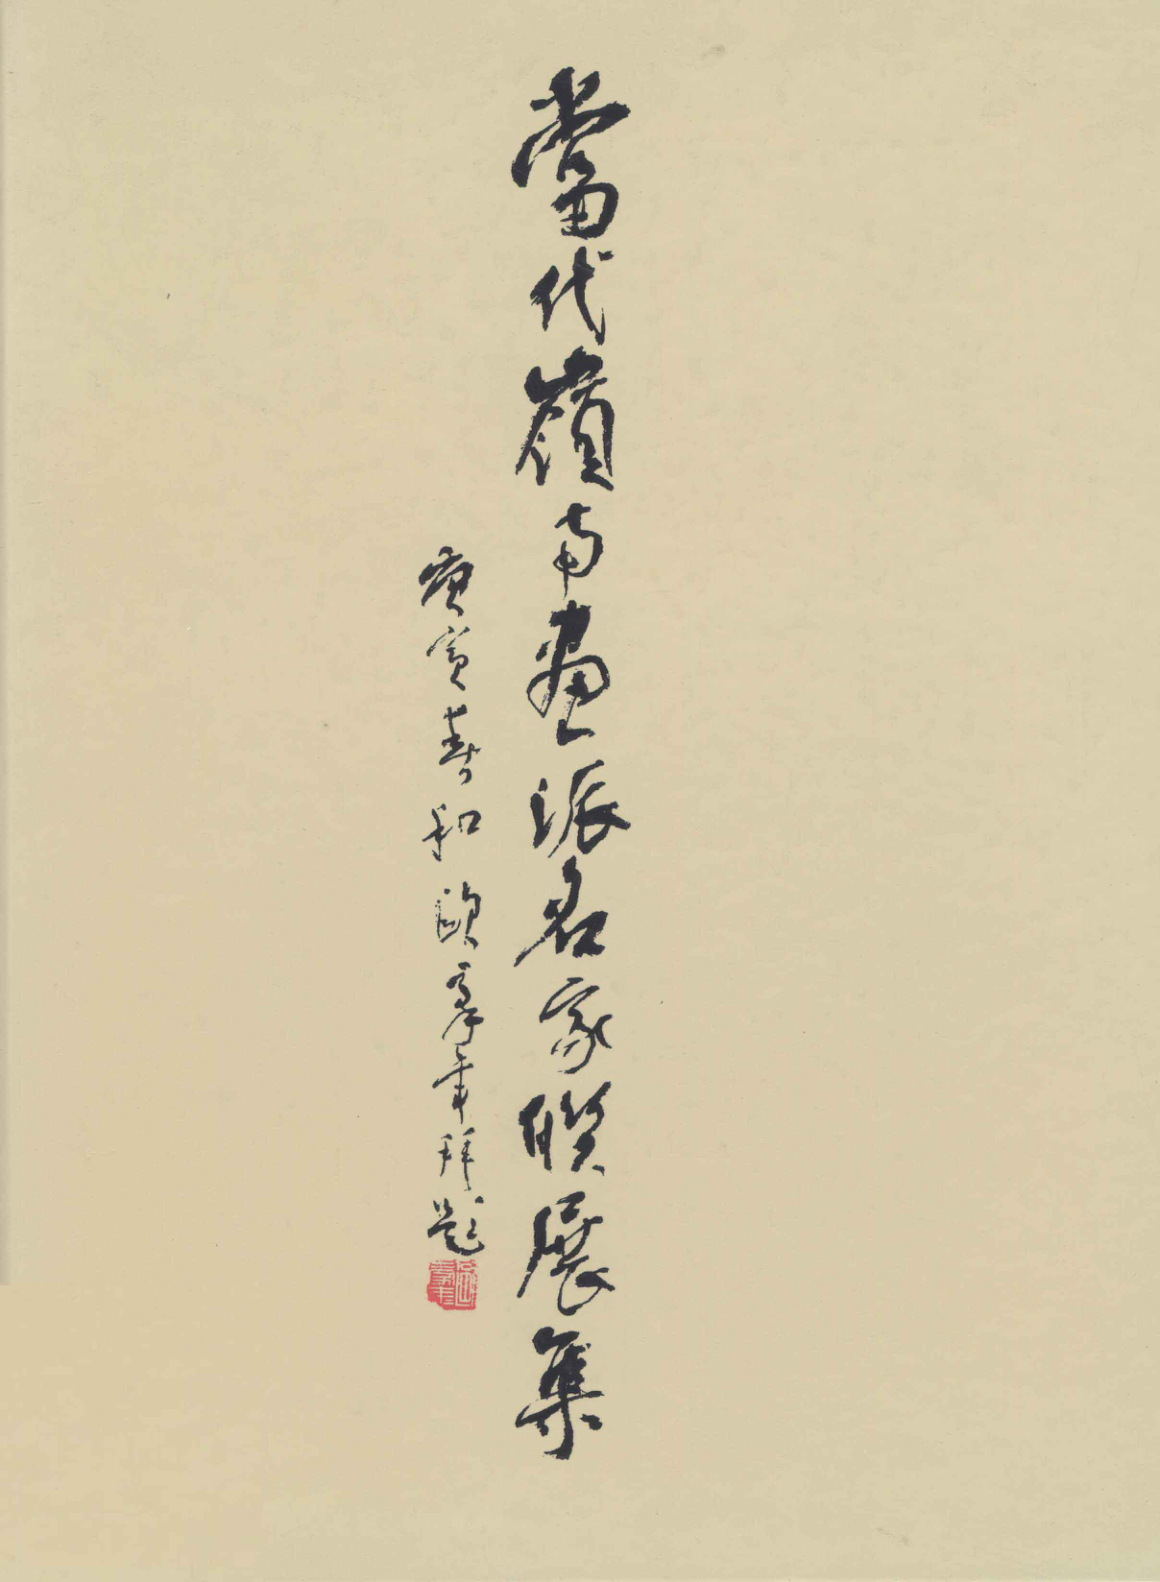 當代嶺南畫派名家聯展集
庚寅春和欧豪年拜題